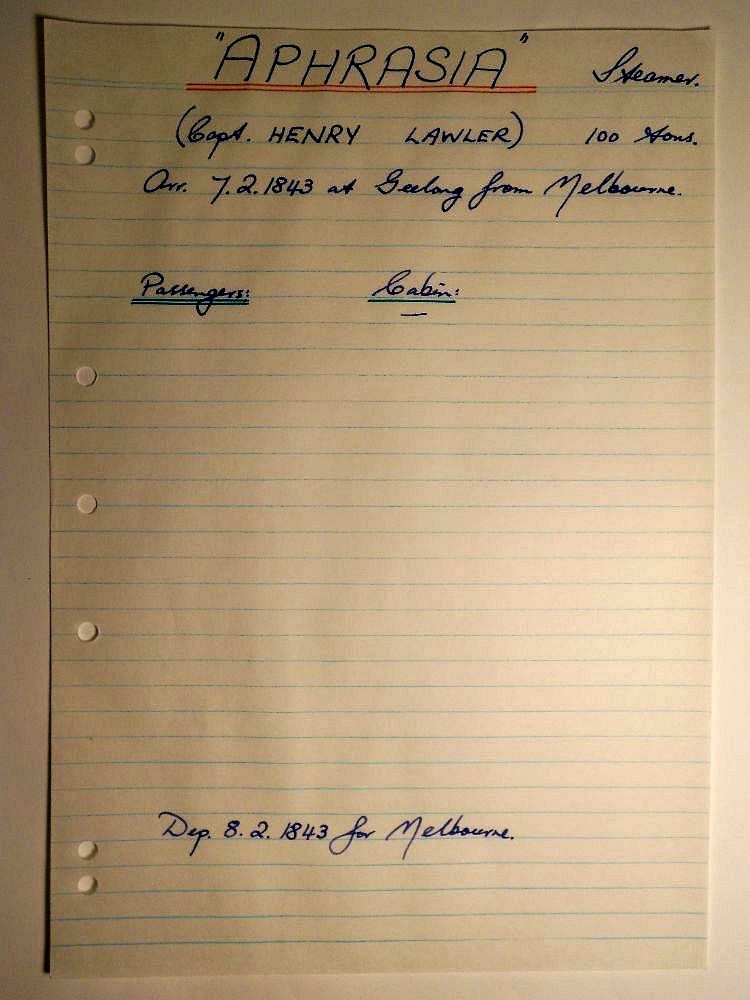 "APHRASIA" Steamer.
(Capt. HENRY LAWLER) 100 tons.
Arr. 7.2.1843 at Geelong from Melbourne.
Passengers: Cabin:
—
Dep. 8.2.1843 for Melbourne.